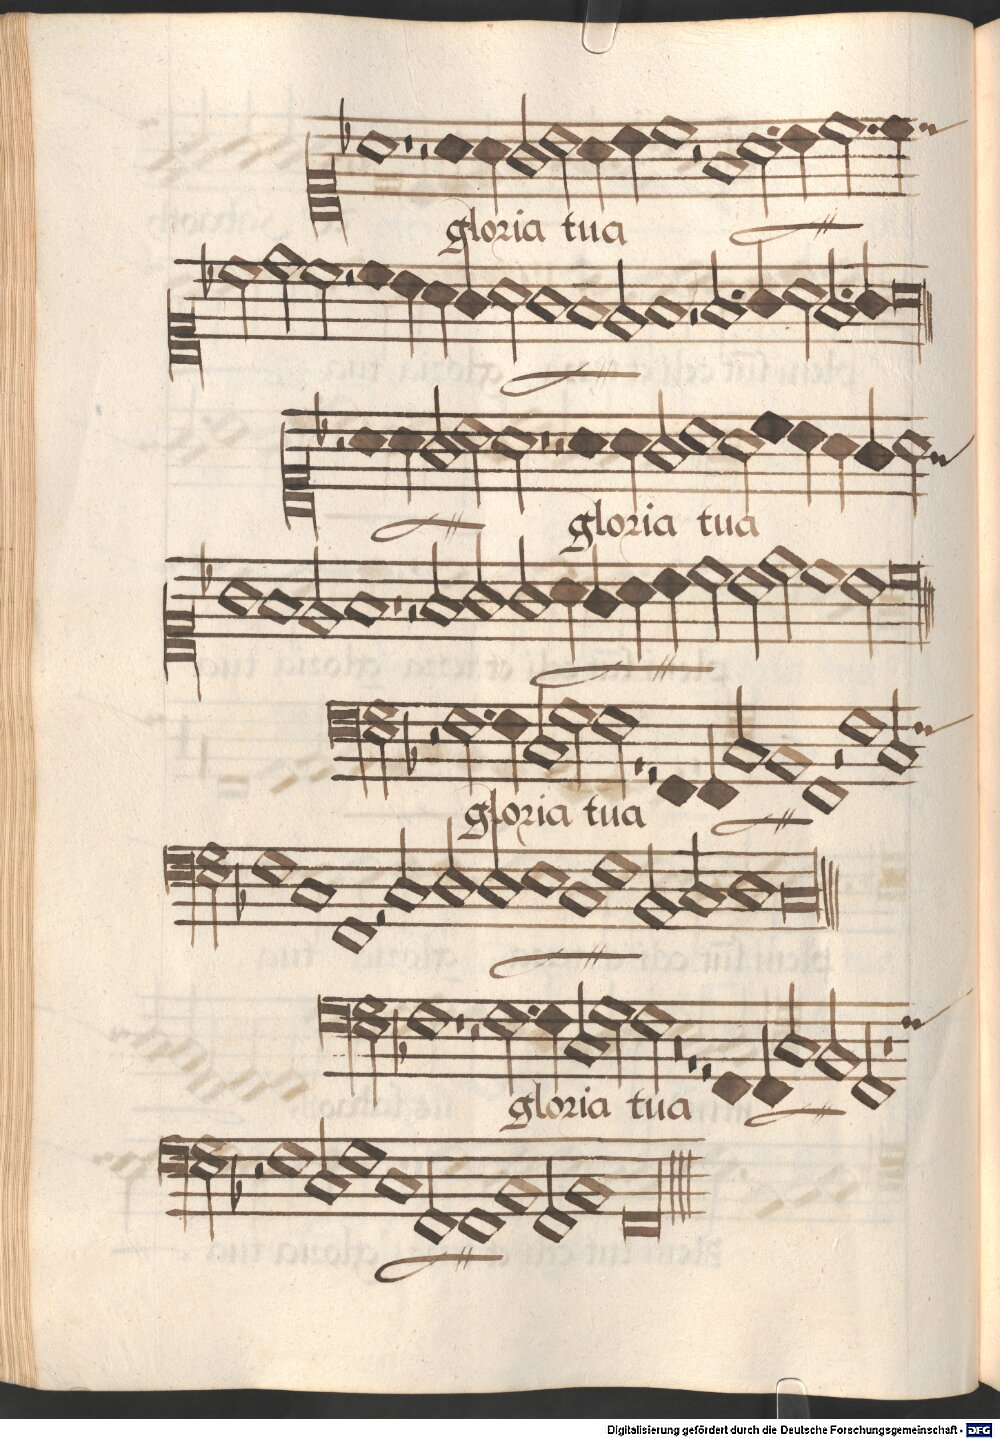 gloria tua
gloria tua
gloria tua
gloria tua
Digitalisierung gefördert durch die Deutsche Forschungsgemeinschaft - DFG